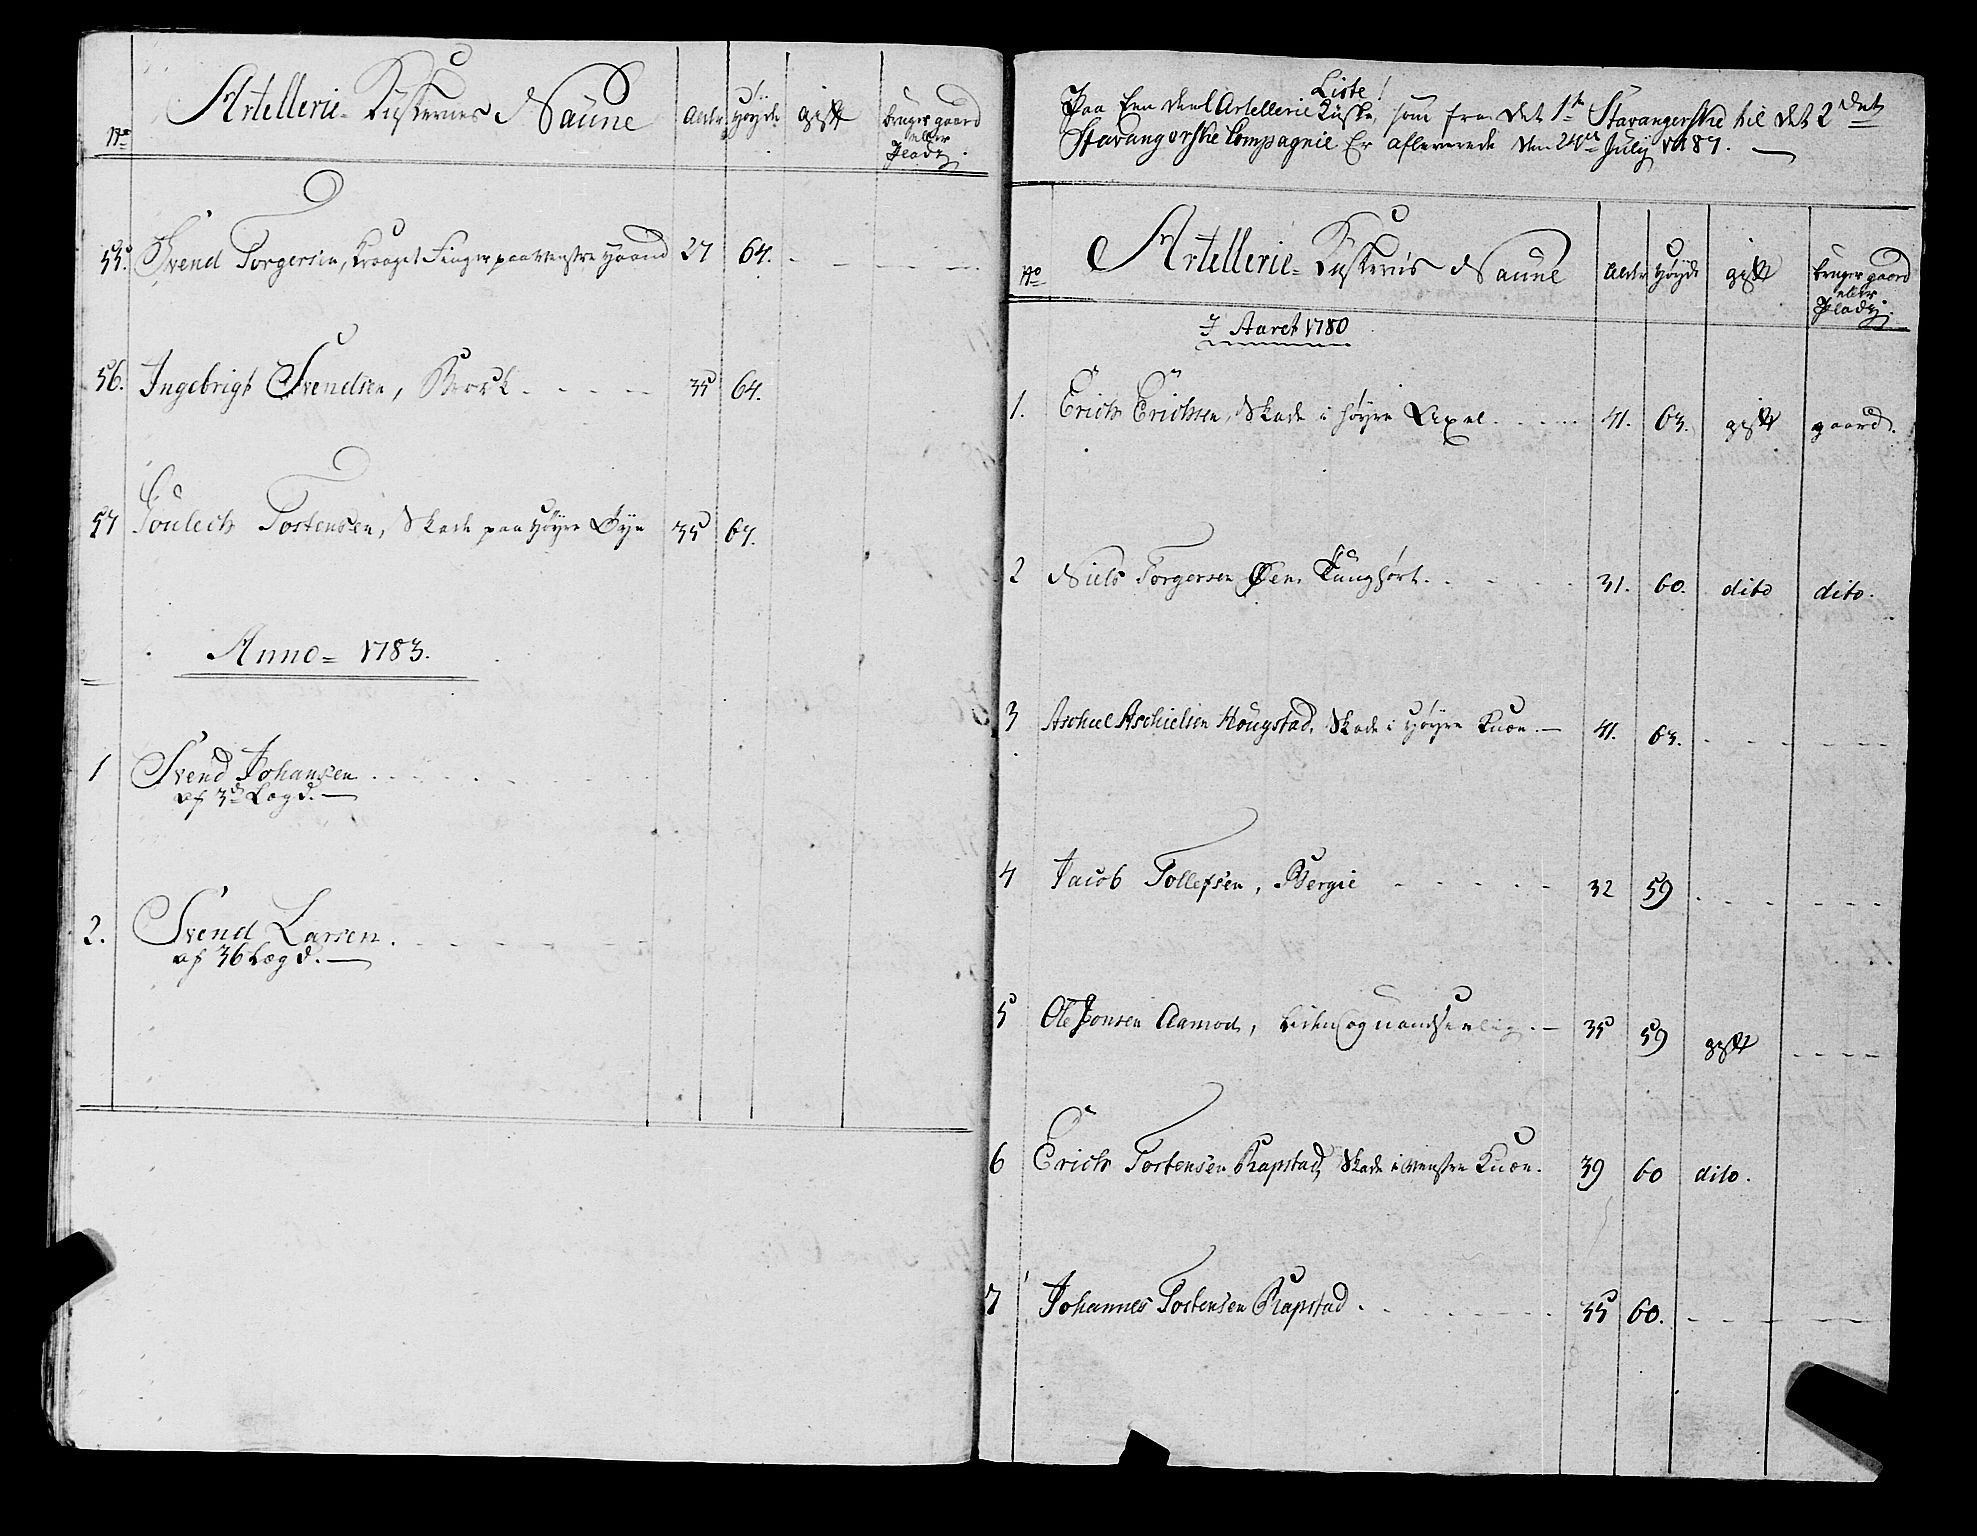 No
Artellerie-Kuskernes Naune
Alder
Høyde
gift
bruger gaard
eller
Pladz
55. Svend Torgersen, Kroaget Finger paa venstre Haand 27 64.
56. Ingebrigt Svendsen, Mork 35 64.
57 Goulech Tostensen, Skade paa Høyre Øye 35 64.
Anno= 1783.
1 Svend Johansen
af 3d Lægd.
2. Svend Larsen.
af 36 Lægd.
Liste!
Paa Een deel Artellerie Kuske, som fra det 1ste Stavangerske til det 2det
Stavangerske Compagnie Er afleverede den July 1787.
No
Artellerie=Kuskernis Naune
Alder
Høyde
gift
bruger gaard
eller
Pladz.
I Aaret 1780
1. Erich Erichsen, Skade i høyre Axel. 41. 63. gift gaard.
2 Niels Torgersen Øen, Tunghørt. 31. 60. dito dito.
3 Aschiel Aschielsen Hougstad, Skade i Høyre Knæe. 41. 63.
4 Jacob Tollefsen, Bergie 32 59
5 Ole Jonsen Aamod, liden og uandseelig. 35 59 gift
6 Erich Tostensen Rapstad, Skade i venstre Knæe. 39 60 dito.
7 Johannes Tostensen Rapstad. 35 60.